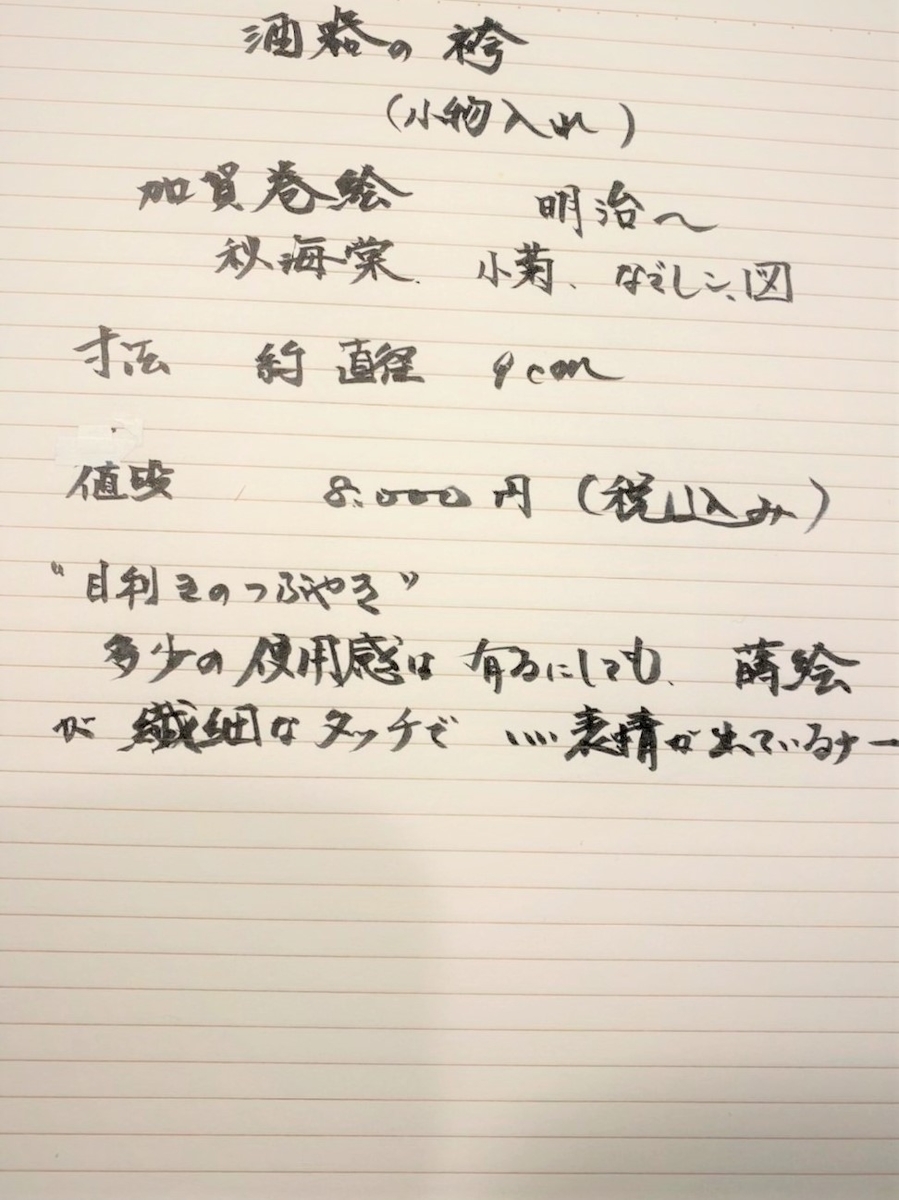 酒器の袴
(小物入れ)
加賀巻絵 明治〜
秋海棠. 小菊、なでしこ、図
寸法 約 直径 9cm
値段 8.000円(税込み)
“目利きのつぶやき”
多少の使用感は有るにしても、蒔絵
が繊細なタッチで ....表情が出ているナー